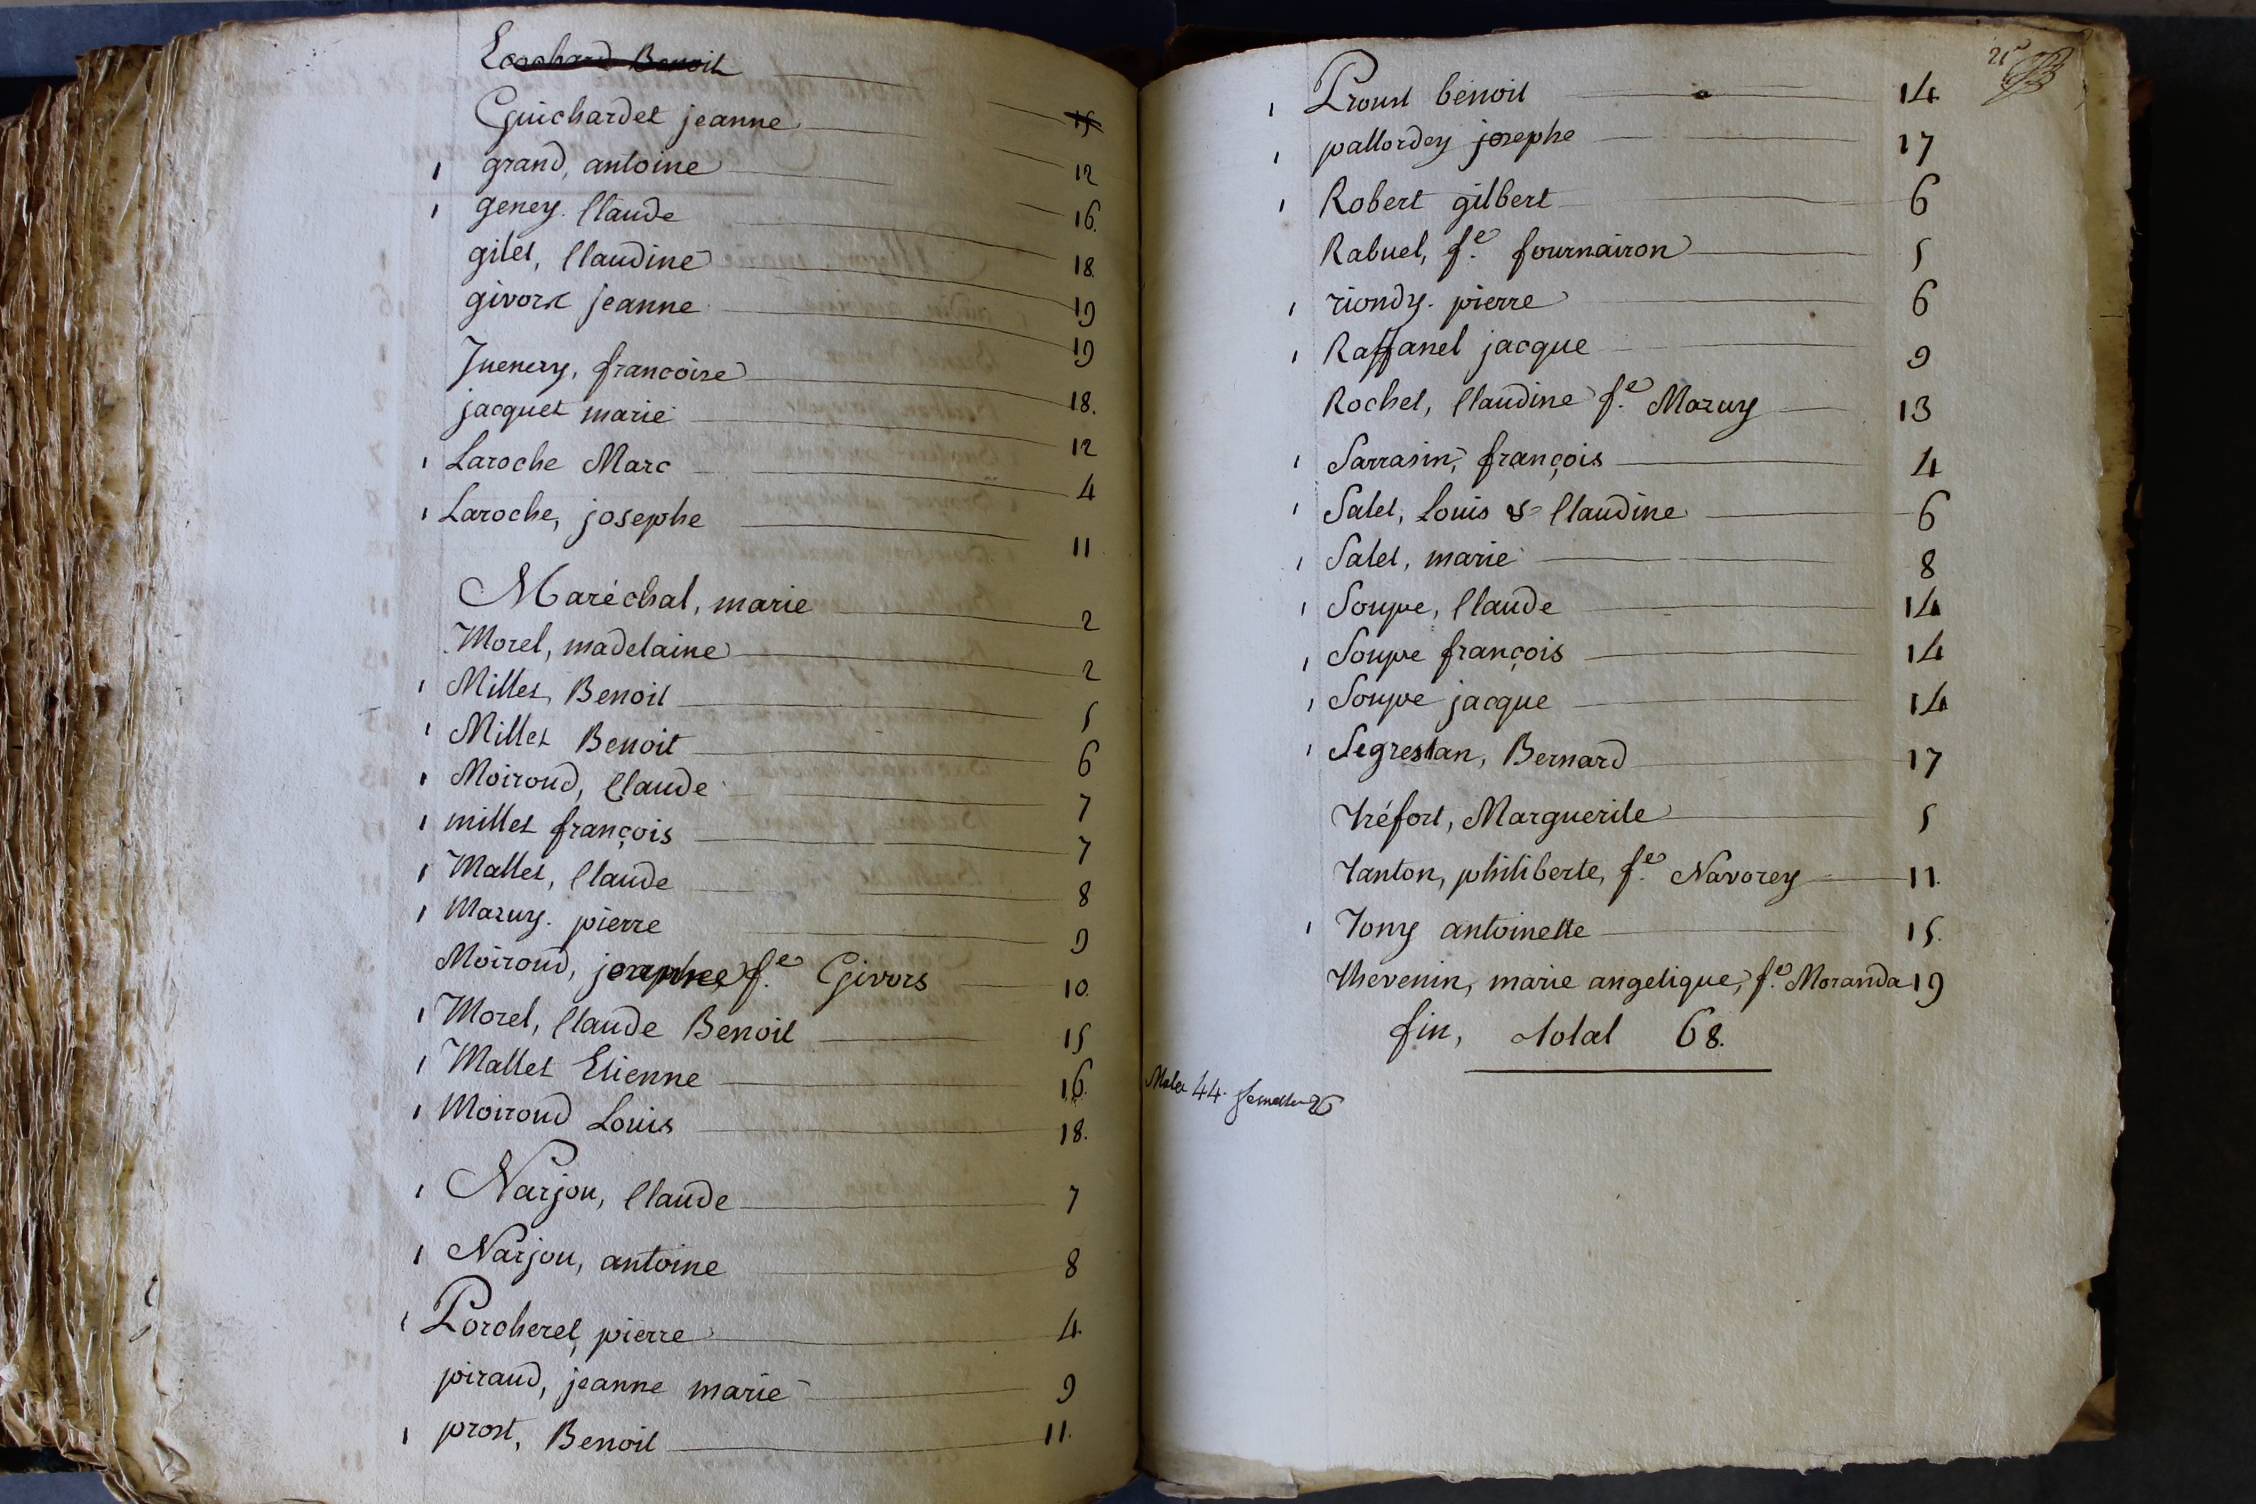 Guichardet jeanne 15
1 grand, antoine 12
1 geney. Claude 16.
gilet, Claudine 18.
givors jeanne 19
19
Juenery, francoise 18.
jacquet marie 12
1 Laroche Marc 4
1 Laroche, josephe 11
Maréchal, marie 2
Morel, madelaine 2
1 Millet, Benoit 5
1 Millet Benoit 6
1 Moiroud, Claude 7
1 millet françois 7
1 Mallet, Claude 8
1 Mazuy. pierre 9
Moiroud, josephee fe. Givors 10.
1 Morel, Claude Benoit 15
1 Mallet Etienne 16.
1 Moiroud Louis 18.
1 Narjou, Claude 7
1 Narjou, antoine 8
1 Porcheret, pierre 4.
piraud, jeanne marie 9
1 prost, Benoit 11.
21
1 Proust benoit 14
1 pallordey josephe 17
1 Robert gilbert 6
Rabuel, fe. fournairon 5
1 riondy. pierre 6
1 Raffanel jacque 9
Rochet, Claudine fe. Mazuy 13
1 Sarrasin, françois 4
1 Salet, Louis & Claudine 6
1 Salet, marie 8
1 Soupe, Claude 14
1 Soupe françois 14
1 Soupe jacque 14
1 Segrestan, Bernard 17
Tréfort, Marguerite 5
Tanton, philiberte, fe. Navorey 11.
1 Tony antoinette 15.
Thevenin, marie angelique, fe. Moranda 19
fin, total 68.
Males 44. femelles 26